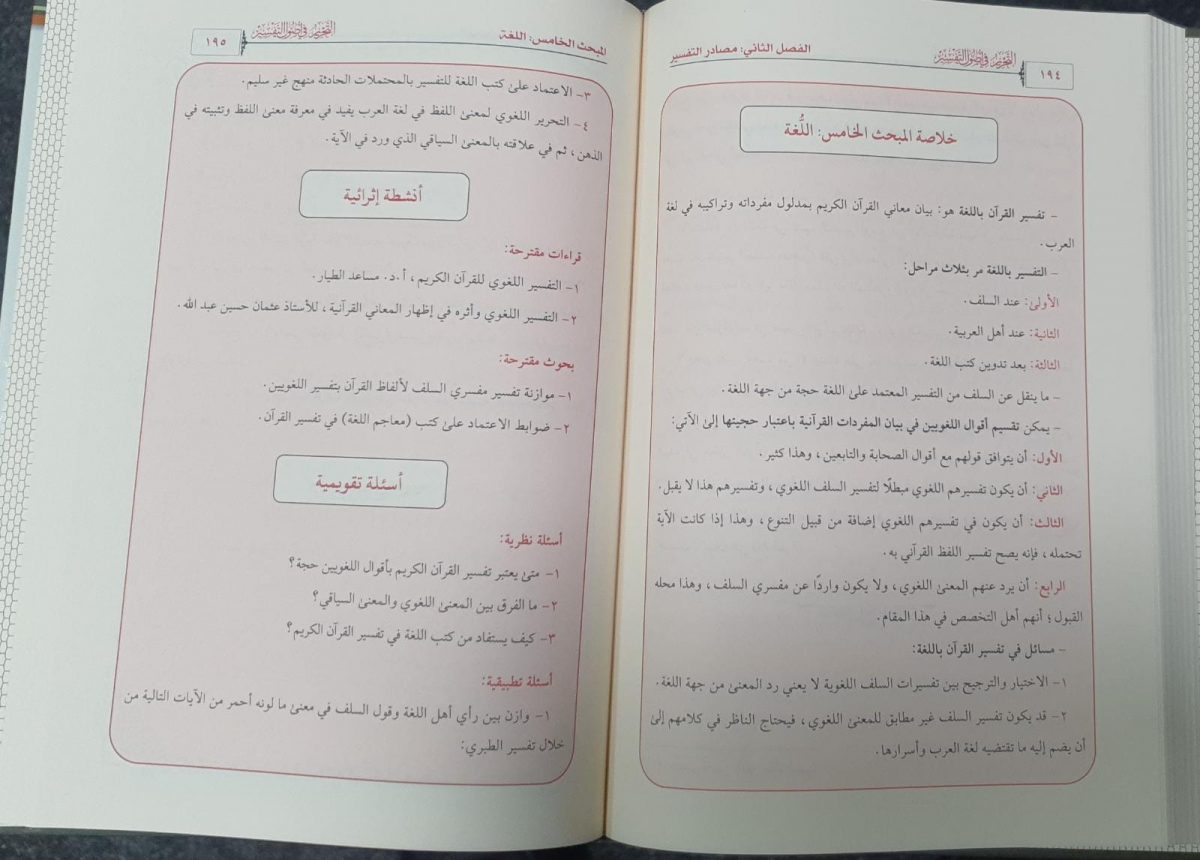 التحرير في أصول التفسير
١٩٤
الفصل الثاني: مصادر التفسير
خلاصة المبحث الخامس: اللُّغة
– تفسير القرآن باللغة هو: بيان معاني القرآن الكريم بمدلول مفرداته وتراكيبه في لغة
العرب.
– التفسير باللغة مر بثلاث مراحل:
الأولىٰ: عند السلف.
الثانية: عند أهل العربية.
الثالثة: بعد تدوين كتب اللغة.
– ما ينقل عن السلف من التفسير المعتمد علىٰ اللغة حجة من جهة اللغة.
– يمكن تقسيم أقوال اللغويين في بيان المفردات القرآنية باعتبار حجيتها إلىٰ الآتي:
الأول: أن يتوافق قولهم مع أقوال الصحابة والتابعين، وهذا كثير.
الثاني: أن يكون تفسيرهم اللغوي مبطلًا لتفسير السلف اللغوي، وتفسيرهم هذا لا يقبل.
الثالث: أن يكون في تفسيرهم اللغوي إضافة من قبيل التنوع، وهذا إذا كانت الآية
تحتمله، فإنه يصح تفسير اللفظ القرآني به.
الرابع: أن يرد عنهم المعنىٰ اللغوي، ولا يكون واردًا عن مفسري السلف، وهذا محله
القبول؛ أنهم أهل التخصص في هذا المقام.
– مسائل في تفسير القرآن باللغة:
١– الاختيار والترجيح بين تفسيرات السلف اللغوية لا يعني رد المعنىٰ من جهة اللغة.
٢– قد يكون تفسير السلف غير مطابق للمعنىٰ اللغوي، فيحتاج الناظر في كلامهم إلىٰ
أن يضم إليه ما تقتضيه لغة العرب وأسرارها.
المبحث الخامس: اللغة
التحرير في أصول التفسير
١٩٥
٣– الاعتماد علىٰ كتب اللغة للتفسير بالمحتملات الحادثة منهج غير سليم.
٤– التحرير اللغوي لمعنىٰ اللفظ في لغة العرب يفيد في معرفة معنىٰ اللفظ وتثبيته في
الذهن، ثم في علاقته بالمعنىٰ السياقي الذي ورد في الآية.
أنشطة إثرائية
قراءات مقترحة:
١– التفسير اللغوي للقرآن الكريم، أ.د. مساعد الطيار.
٢– التفسير اللغوي وأثره في إظهار المعاني القرآنية، للأستاذ عثمان حسين عبد الله.
بحوث مقترحة:
١– موازنة تفسير مفسري السلف لألفاظ القرآن بتفسير اللغويين.
٢– ضوابط الاعتماد علىٰ كتب (معاجم اللغة) في تفسير القرآن.
أسئلة تقويمية
أسئلة نظرية:
١– متىٰ يعتبر تفسير القرآن الكريم بأقوال اللغويين حجة؟
٢– ما الفرق بين المعنىٰ اللغوي والمعنىٰ السياقي؟
٣– كيف يستفاد من كتب اللغة في تفسير القرآن الكريم؟
أسئلة تطبيقية:
١– وازن بين رأي أهل اللغة وقول السلف في معنىٰ ما لونه أحمر من الآيات التالية من
خلال تفسير الطبري: